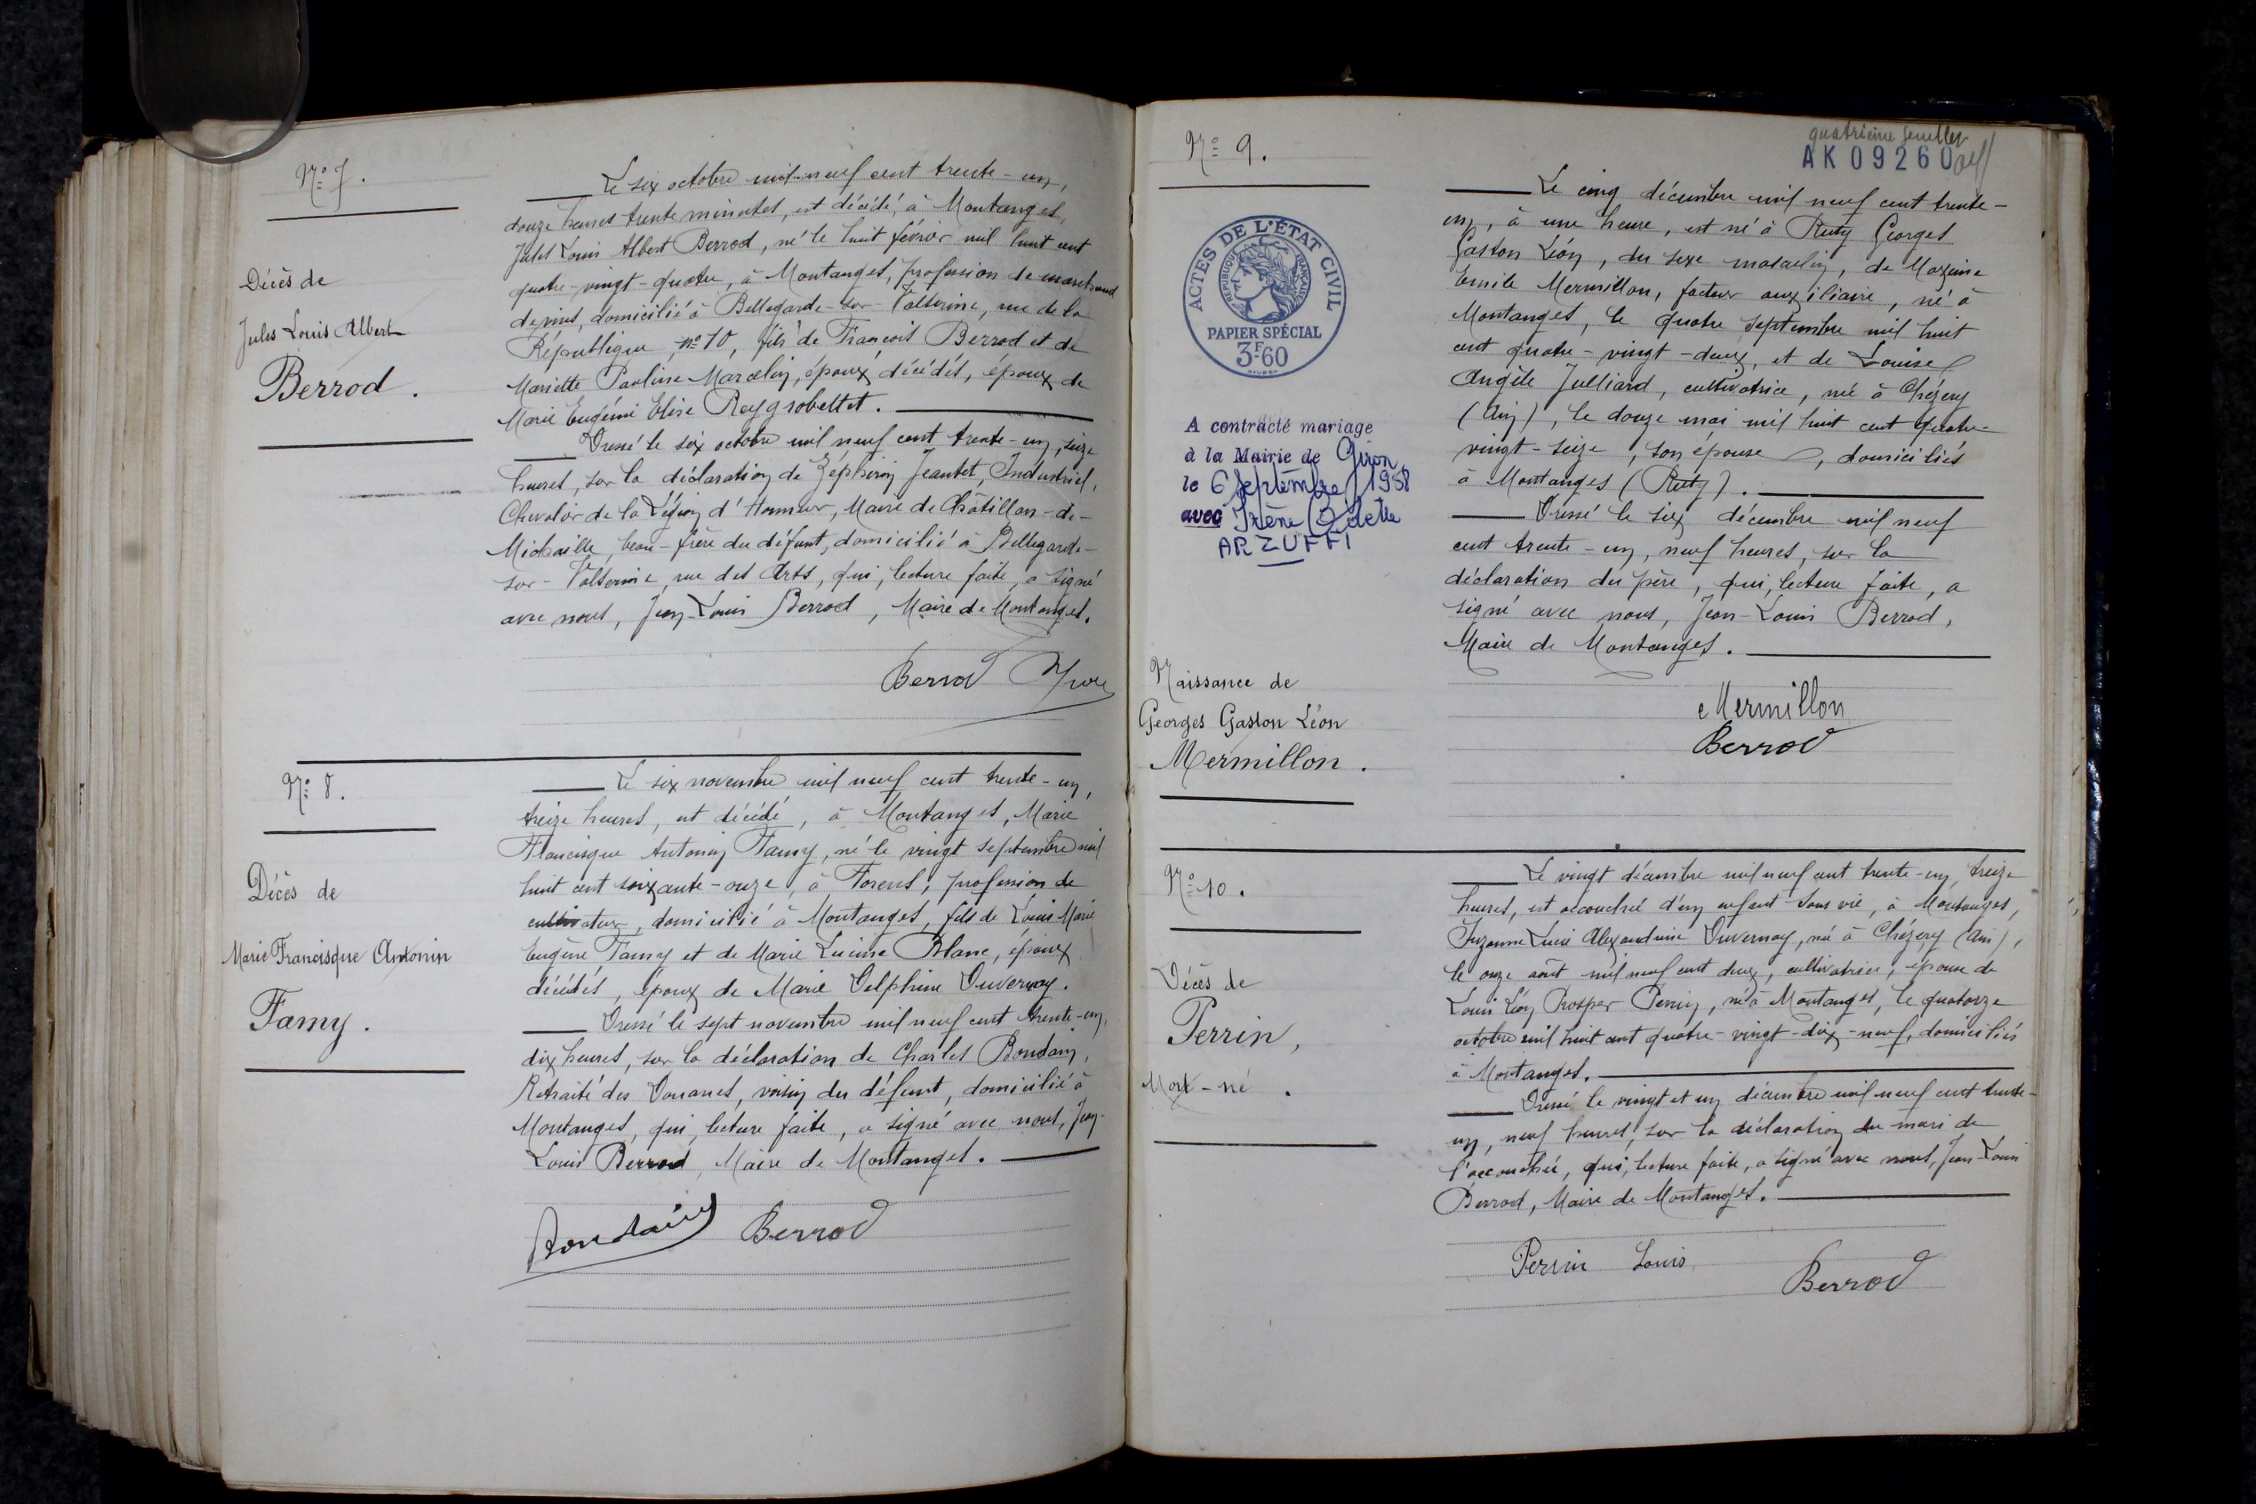 Nº 7.
Décès de
Jules Louis Albert
Berrod.
Le six octobre mil neuf cent trente-un,
douze heures trente minutes, est décédé, à Montanges,
Jules Louis Albert Berrod, né le huit février mil huit cent
quatre-vingt-quatre, à Montanges, profession de marchand
de vins, domicilié à Bellegarde-sur-Valserine, rue de la
République, nº 10, fils de François Berrod et de
Mariette Pauline Marcelin, époux décédés, époux de
Marie Eugénie Elise Reygrobellet.
Dressé le six octobre mil neuf cent trente-un, seize
heures, sur la déclaration de Zéphirin Jeantet, Industriel,
Chevalier de la Légion d'Honneur, Maire de Châtillon-de-
Michaille, beau-frère du défunt, domicilié à Bellegarde-
sur-Valserine, rue des Arts, qui, lecture faite, a signé
avec nous, Jean-Louis Berrod, Maire de Montanges.
Berrod
Nº 8.
Décès de
Marie Francisque Antonin
Famy.
Le six novembre mil neuf cent trente-un,
treize heures, est décédé, à Montanges, Marie
Francisque Antonin Famy, né le vingt septembre mil
huit cent soixante-onze, à Forens, profession de
cultivateur, domicilié à Montanges, fils de Louis Marie
Eugène Famy et de Marie Lucine Blanc, époux
décédés, époux de Marie Delphine Duvernay.
Dressé le sept novembre mil neuf cent trente-un,
dix heures, sur la déclaration de Charles Bondain,
Retraité des Douanes, voisin du défunt, domicilié à
Montanges, qui, lecture faite, a signé avec nous, Jean-
Louis Berrod, Maire de Montanges.
Bondain Berrod
quatrième feuillet
AK 09260
Nº 9.
ACTES DE L'ÉTAT CIVIL
RÉPUBLIQUE FRANÇAISE
PAPIER SPÉCIAL
3F60
A contracté mariage
à la Mairie de Giron,
le 6 Septembre 1958
avec Irène Odette
ARZUFFI
Naissance de
Georges Gaston Léon
Mermillon.
Le cinq décembre mil neuf cent trente-
un, à une heure, est né à Ruty Georges
Gaston Léon, du sexe masculin, de Maxime
Emile Mermillon, facteur auxiliaire, né à
Montanges, le quatre septembre mil huit
cent quatre-vingt-deux, et de Louise
Angèle Julliard, cultivatrice, née à Chézery
(Ain), le douze mai mil huit cent quatre-
vingt-seize, son épouse, domiciliés
à Montanges (Ruty).
Dressé le six décembre mil neuf
cent trente-un, neuf heures, sur la
déclaration du père, qui, lecture faite, a
signé avec nous, Jean-Louis Berrod,
Maire de Montanges.
Mermillon
Berrod
Nº 10.
Décès de
Perrin,
Mort-né.
Le vingt décembre mil neuf cent trente-un, treize
heures, est accouchée d'un enfant sans vie, à Montanges,
Suzanne Lucie Alexandrine Duvernay, née à Chézery (Ain),
le onze août mil neuf cent deux, cultivatrice, épouse de
Louis Léon Prosper Perrin, né à Montanges, le quatorze
octobre mil huit cent quatre-vingt-dix-neuf, domiciliés
à Montanges.
Dressé le vingt et un décembre mil neuf cent trente-
un, neuf heures, sur la déclaration du mari de
l'accouchée, qui, lecture faite, a signé avec nous, Jean-Louis
Berrod, Maire de Montanges.
Perrin Louis
Berrod